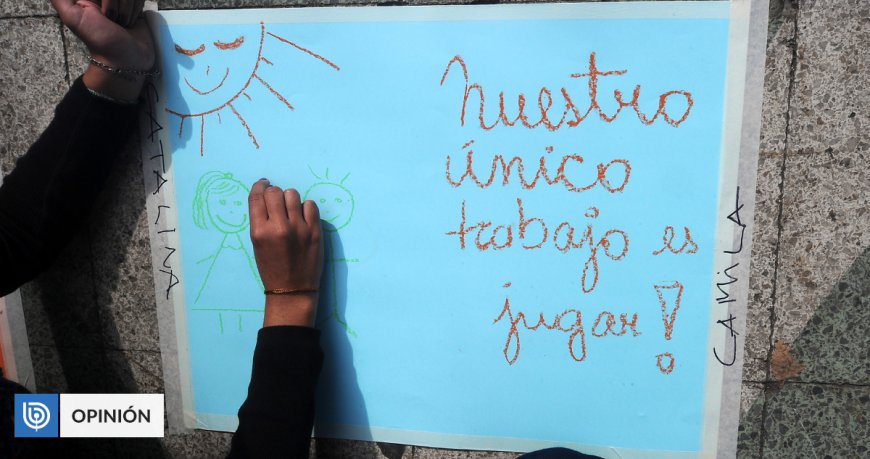 Nuestro
único
trabajo es
jugar!
CATALINA
CAMiLA
b
OPINIÓN